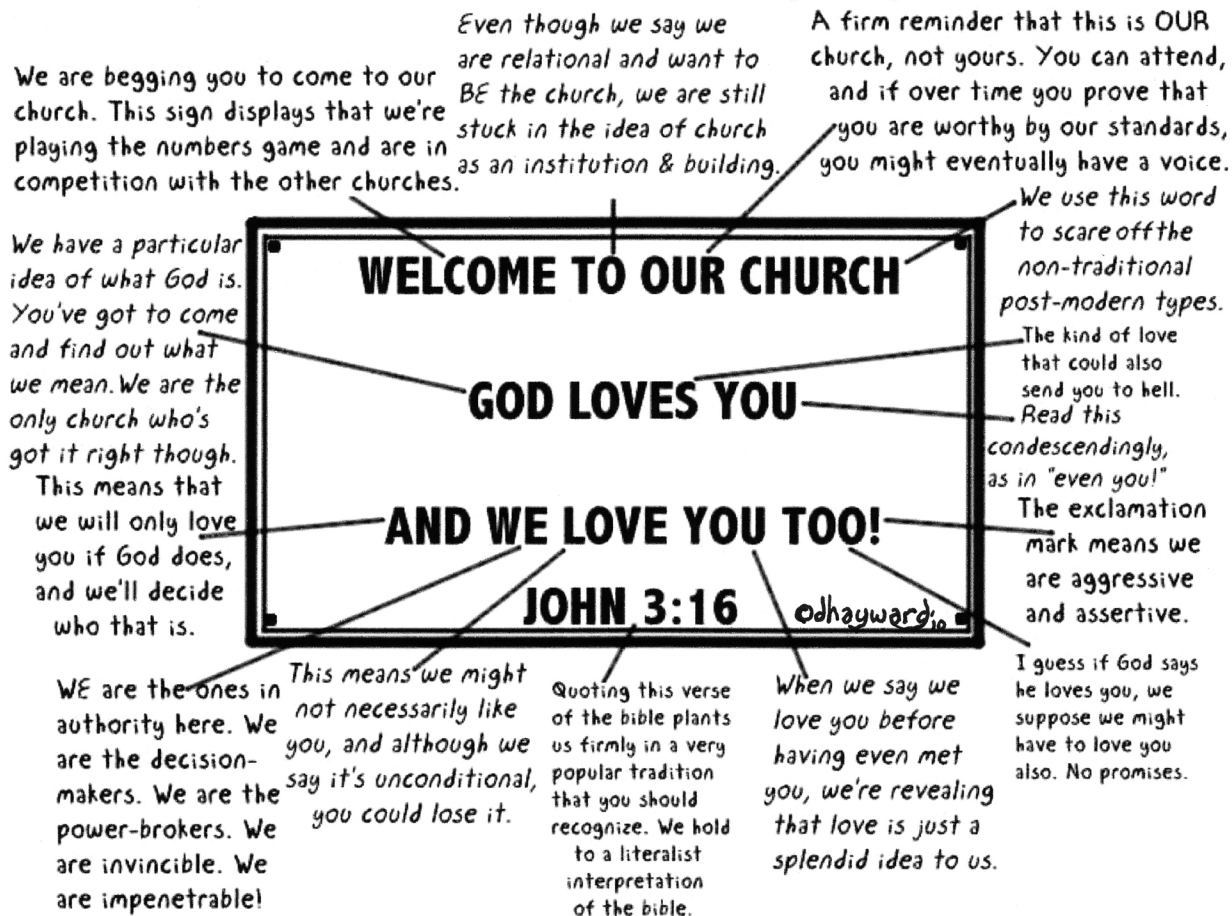 We are begging you to come to our
church. This sign displays that we're
playing the numbers game and are in
competition with the other churches.
Even though we say we
are relational and want to
BE the church, we are still
stuck in the idea of church
as an institution & building.
A firm reminder that this is OUR
church, not yours. You can attend,
and if over time you prove that
you are worthy by our standards,
you might eventually have a voice.
We use this word
to scare off the
non-traditional
post-modern types.
We have a particular
idea of what God is.
You've got to come
and find out what
we mean. We are the
only church who's
got it right though.
The kind of love
that could also
send you to hell.
Read this
condescendingly,
as in "even you!"
This means that
we will only love
you if God does,
and we'll decide
who that is.
The exclamation
mark means we
are aggressive
and assertive.
WELCOME TO OUR CHURCH
GOD LOVES YOU
AND WE LOVE YOU TOO!
JOHN 3:16
©dhayward:10
WE are the ones in
authority here. We
are the decision-
makers. We are the
power-brokers. We
are invincible. We
are impenetrable!
This means we might
not necessarily like
you, and although we
say it's unconditional,
you could lose it.
Quoting this verse
of the bible plants
us firmly in a very
popular tradition
that you should
recognize. We hold
to a literalist
interpretation
of the bible.
When we say we
love you before
having even met
you, we're revealing
that love is just a
splendid idea to us.
I guess if God says
he loves you, we
suppose we might
have to love you
also. No promises.